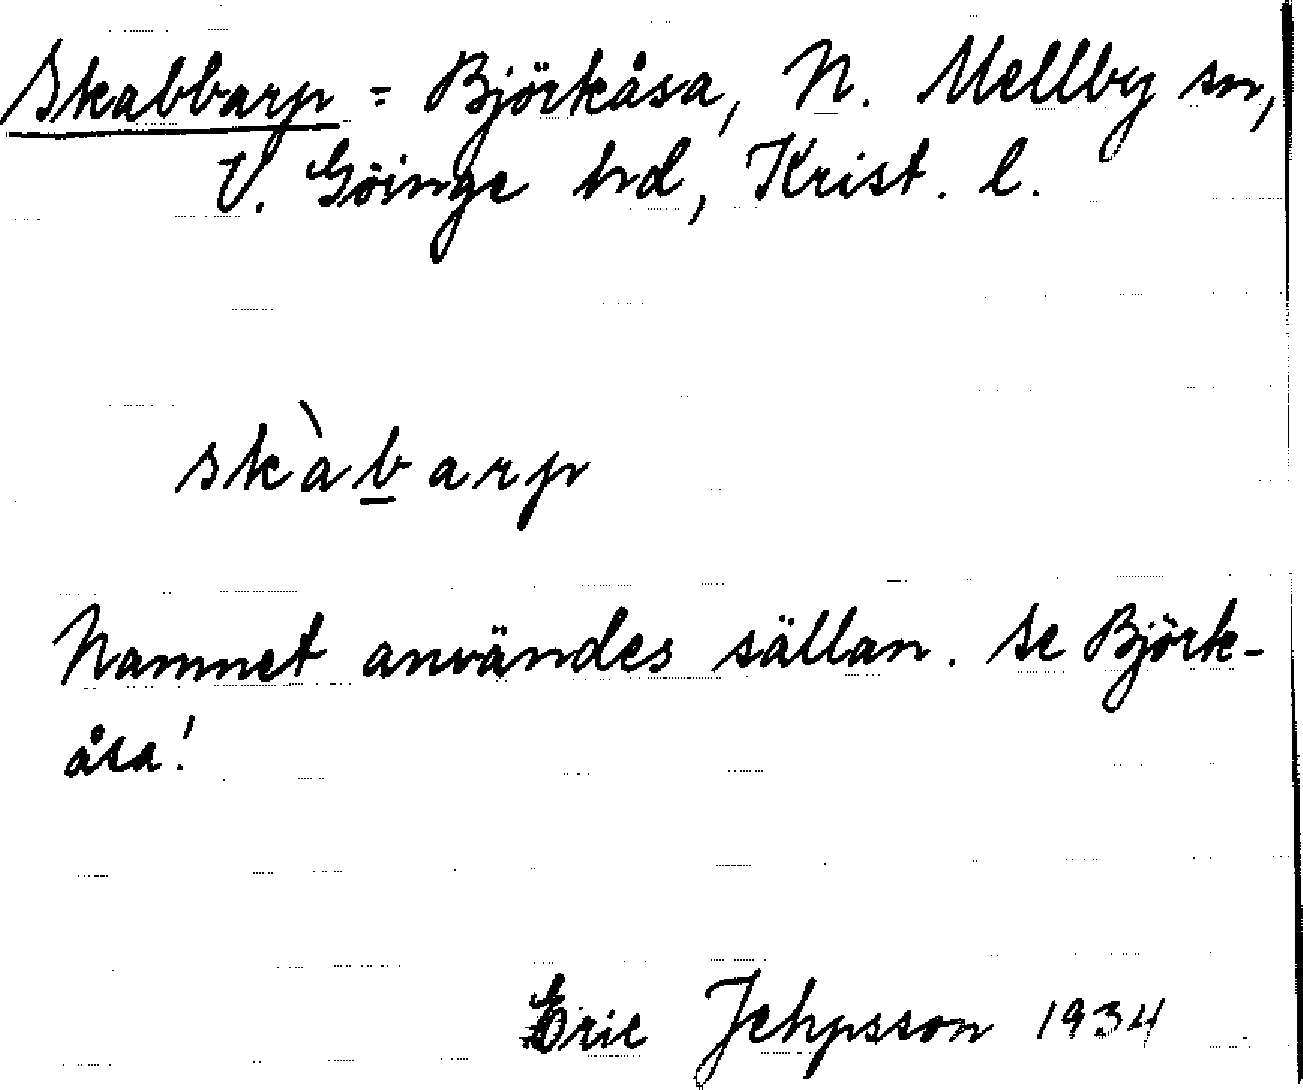 Skabbarp = Björkåsa, N. Mellby sn,
V. Göinge hd, Krist. l.
skàb̲arp
Namnet användes sällan. Se Björk-
åsa!
Eric Jehpsson 1934